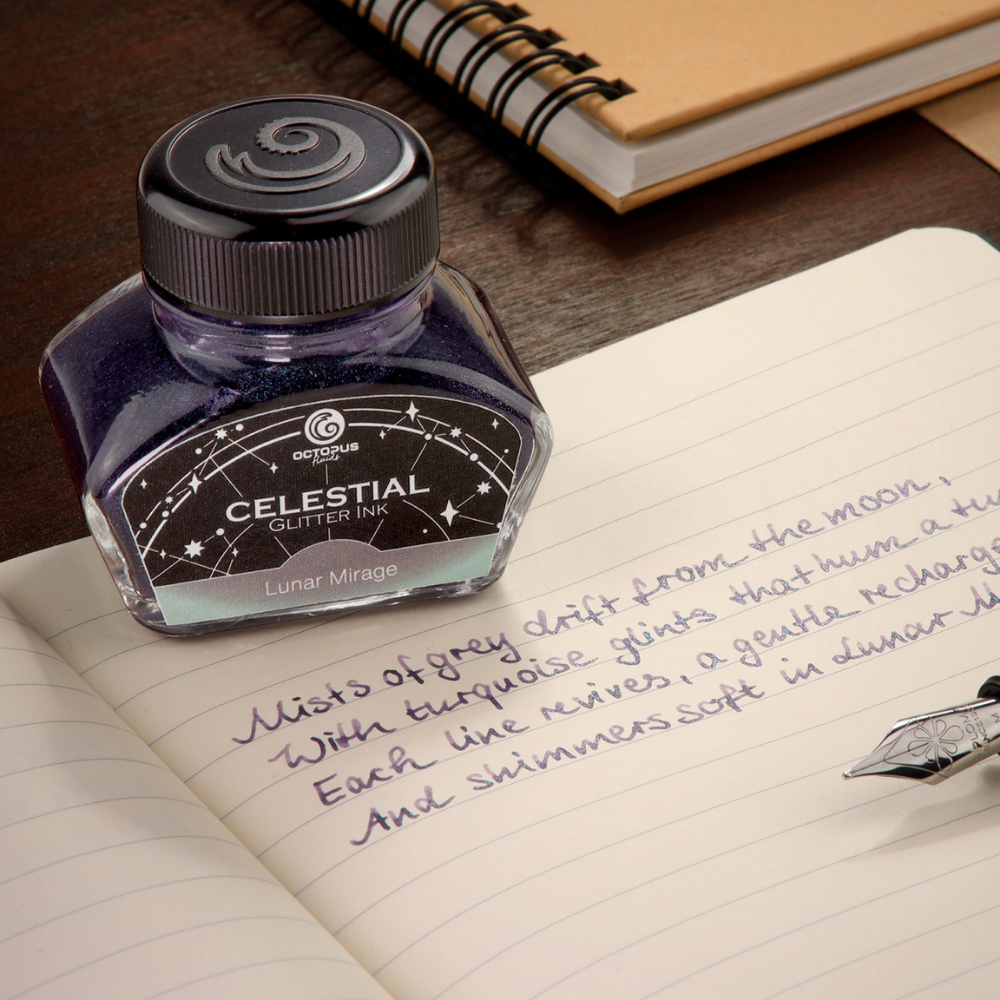 OCTOPUS
Fluids
CELESTIAL
GLITTER INK
Lunar Mirage
Mists of grey drift from the moon,
With turquoise glints that hum a tu
Each line revives, a gentle recharge
And shimmers soft in Lunar M